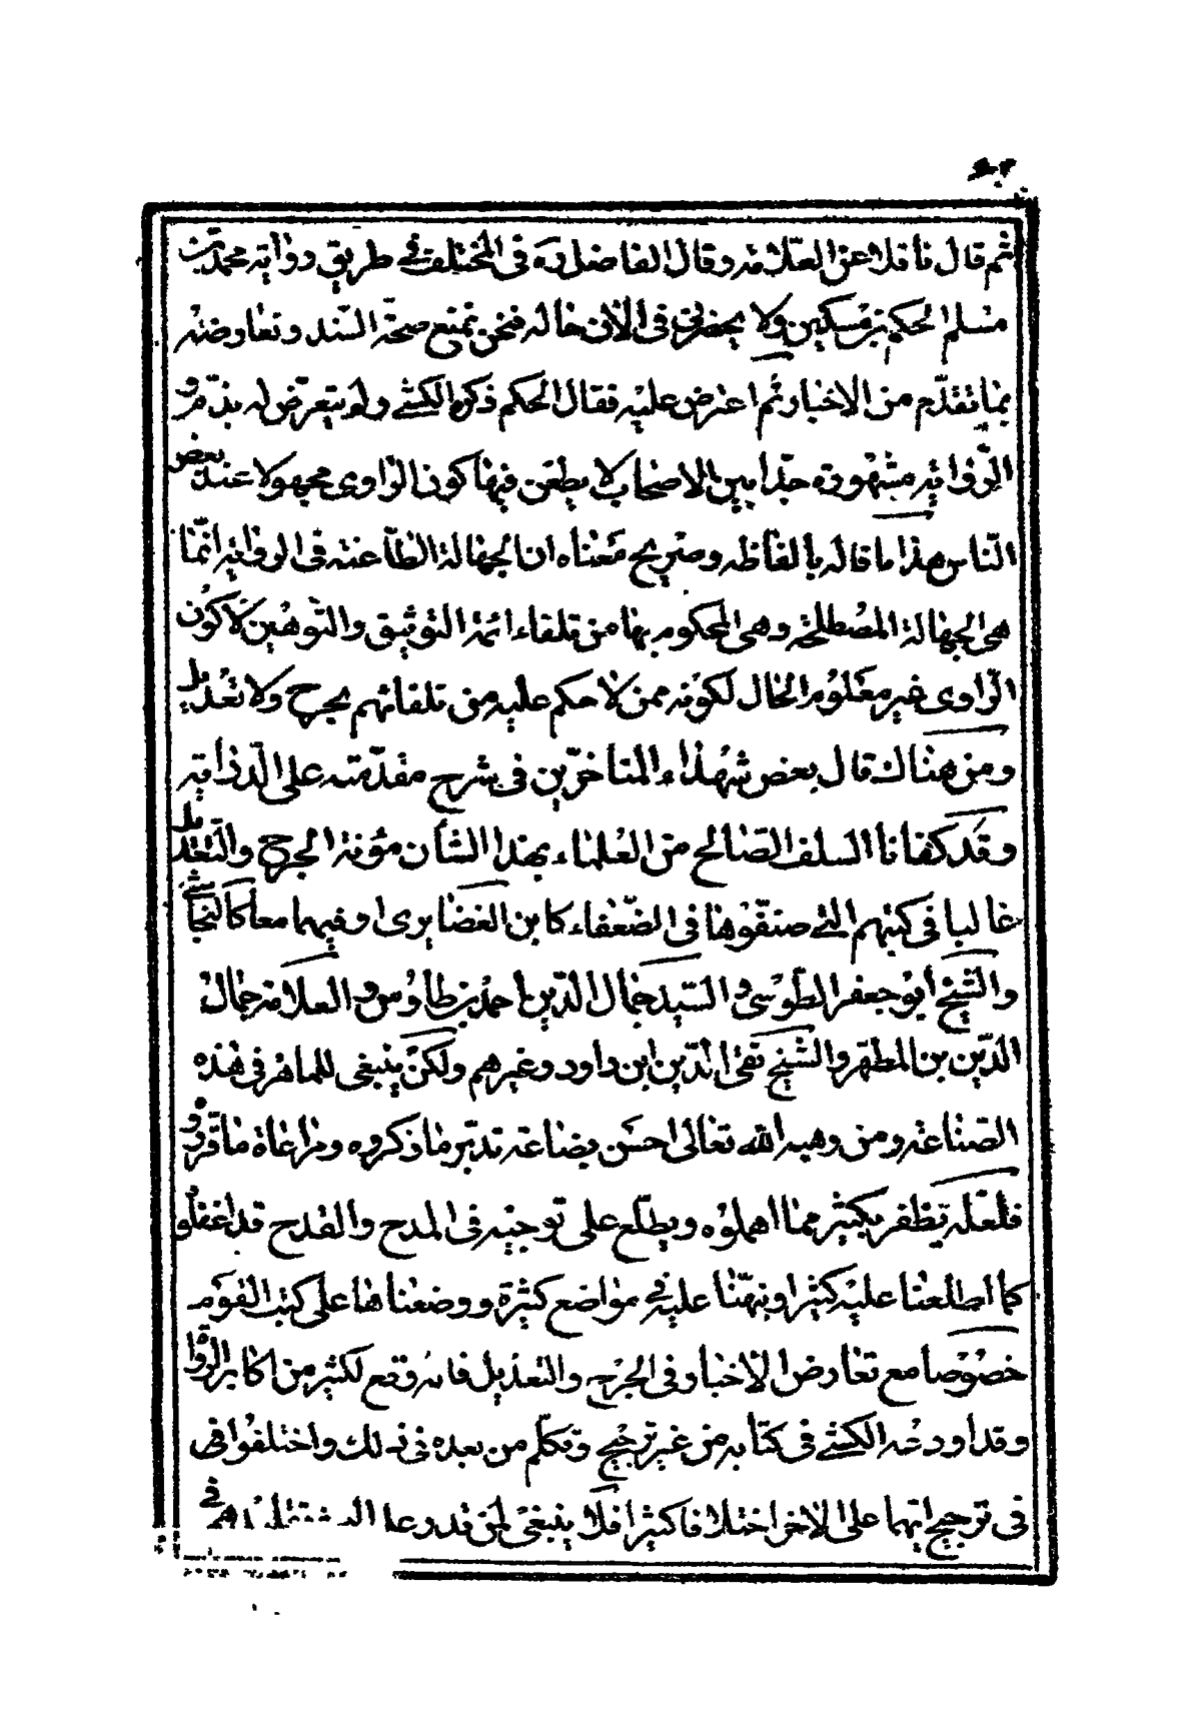 ثم قال ناقلا عن العلامة وقال الفاضل ره في المختلف في طريق رواية محمد بن
مسلم الحكم بن مسكين ولا يحضرني في الآن حاله فنحن نمنع صحة السند ونعارضه
بما تقدم من الاخبار ثم اعترض عليه فقال الحكم ذكره الكشي ولم يتعرض له بذم و
الرواية مشهورة جدا بين الاصحاب لا يطعن فيها كون الراوي مجهولا عند بعض
الناس هذا ما قاله بالفاظه وصريح معناه ان الجهالة الطاعنة في الرواية انما
هي الجهالة المصطلحة وهي المحكوم بها من تلقاء ائمة التوثيق والتوهين لا كون
الراوي غير معلوم الحال لكونه ممن لا حكم عليه من تلقائهم بجرح ولا تعديل
ومن هناك قال بعض شهداء المتاخرين في شرح مقدمته على الدراية
وقد كفانا السلف الصالح من العلماء بهذا الشأن مؤنة الجرح والتعديل
غالبا في كتبهم التي صنفوها في الضعفاء كابن الغضايري او فيهما معا كالنجاشي
والشيخ أبو جعفر الطوسي و السيد جمال الدين احمد بن طاوس و العلامة جمال
الدين بن المطهر والشيخ تقي الدين ابن داود وغيرهم ولكن ينبغي للماهر في هذه
الصناعة ومن وهبه الله تعالى احسن بضاعة تدبر ما ذكروه ومراعاة ما قرروه
فلعله يظفر بكثير مما اهملوه ويطلع على توجيه في المدح والقدح قد اغفلوه
كما اطلعنا عليه كثيرا ونبهنا عليه في مواضع كثيرة ووضعناها على كتب القوم
خصوصا مع تعارض الاخبار في الجرح والتعديل فانه وقع لكثير من اكابر الرواة
وقد اودعه الكشي في كتابه من غير ترجيح وتكلم من بعده في ذلك واختلفوا في
في ترجيح ايهما على الاخر اختلافا كثيرا فلا ينبغي لمن قدر على